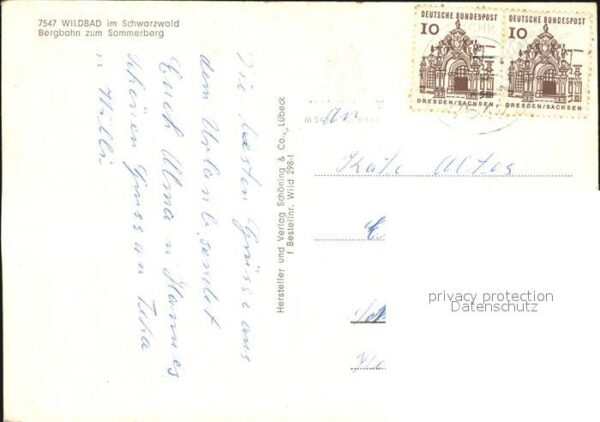 7547 WILDBAD im Schwarzwald
Bergbahn zum Sommerberg
Die besten Grüsse aus
dem Urlaub sendet
Euch Alma u Hannes
Schönen Gruss an
u Willi
Hersteller und Verlag Schöning & Co., Lübeck
f Bestellnr. Wild 298-f
DEUTSCHE BUNDESPOST
10
DRESDEN/SACHSEN
DEUTSCHE BUNDESPOST
10
DRESDEN/SACHSEN
an
Käte
privacy protection
Datenschutz